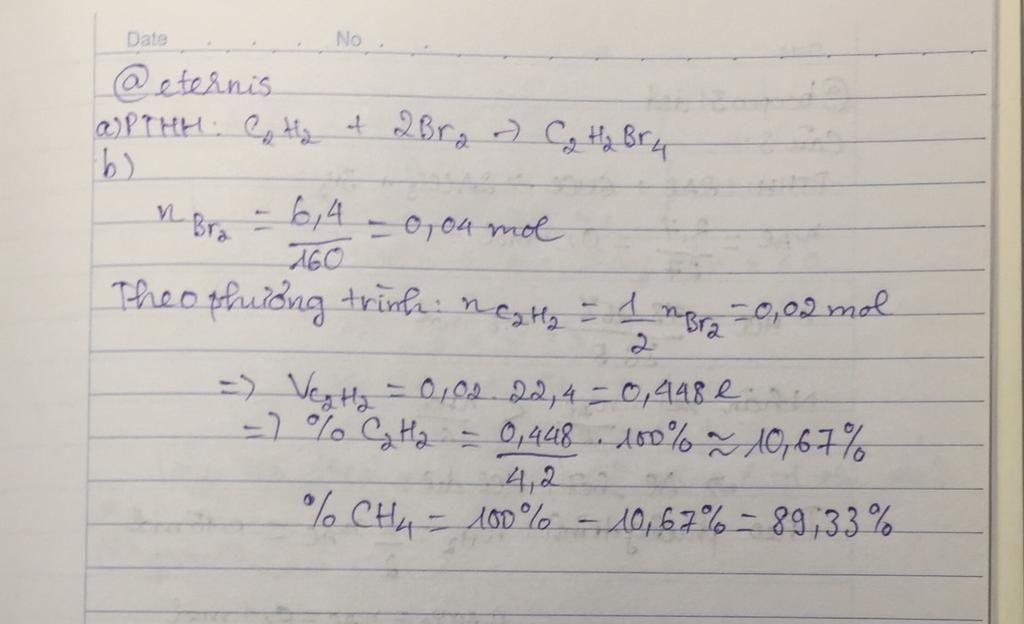 Date No
@eternis
a) PTHH: C₂H₂ + 2Br₂ → C₂H₂Br₄
b)
n Br₂ = 6,4/160 = 0,04 mol
Theo phương trình: n C₂H₂ = 1/2 n Br₂ = 0,02 mol
=> V C₂H₂ = 0,02 . 22,4 = 0,448 l
=> % C₂H₂ = 0,448/4,2 . 100% ≈ 10,67%
% CH₄ = 100% - 10,67% = 89,33%